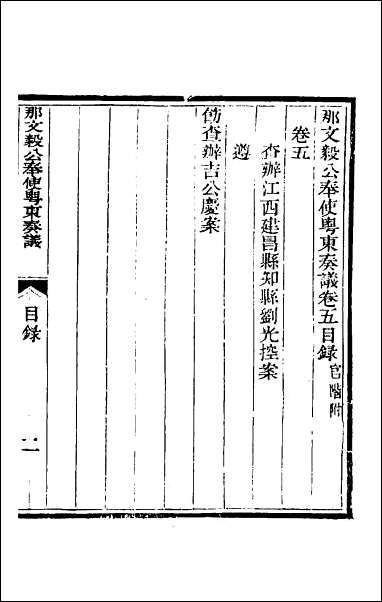 那文毅公奉使粵東奏議卷五目錄 官階附
卷五
查辦江西建昌縣知縣劉光控案
遵
飭查辦吉公慶案
那文毅公奉使粵東奏議
目錄